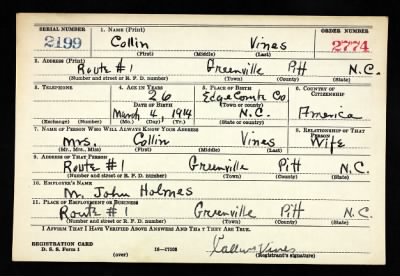 SERIAL NUMBER 1. NAME (Print) ORDER NUMBER
2199 Collin Vines 2774
(First) (Middle) (Last)
2. ADDRESS (Print)
Route #1 Greenville Pitt N.C.
(Number and street or R. F. D. number) (Town) (County) (State)
3. TELEPHONE 4. AGE IN YEARS 5. PLACE OF BIRTH 6. COUNTRY OF CITIZENSHIP
26 EdgeCombe Co
DATE OF BIRTH (Town or county)
March 4, 1914 N.C. America
(Exchange) (Number) (Mo.) (Day) (Yr.) (State or country)
7. NAME OF PERSON WHO WILL ALWAYS KNOW YOUR ADDRESS 8. RELATIONSHIP OF THAT PERSON
Mrs. Collin Vines Wife
(Mr., Mrs., Miss) (First) (Middle) (Last)
9. ADDRESS OF THAT PERSON
Route #1 Greenville Pitt N.C.
(Number and street or R. F. D. number) (Town) (County) (State)
10. EMPLOYER'S NAME
Mr. John Holmes
11. PLACE OF EMPLOYMENT OR BUSINESS
Route #1 Greenville Pitt N.C.
(Number and street or R. F. D. number) (Town) (County) (State)
I AFFIRM THAT I HAVE VERIFIED ABOVE ANSWERS AND THAT THEY ARE TRUE.
REGISTRATION CARD
D. S. S. Form 1 16-17105 Vines
(over) (Registrant's signature)